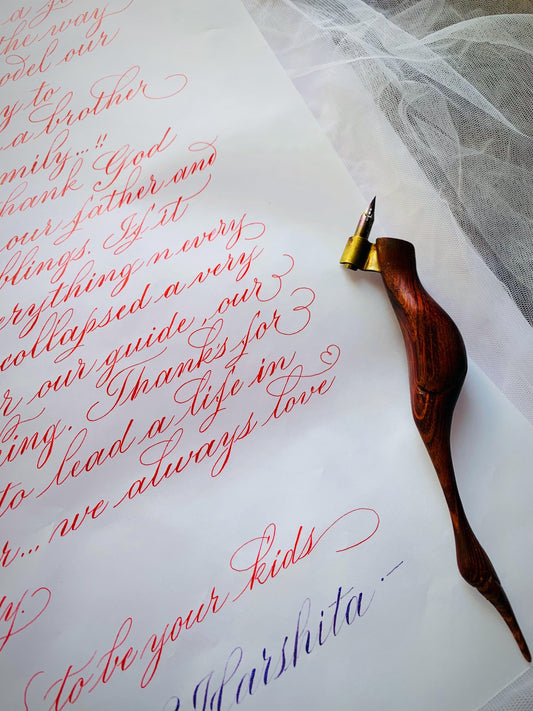 a
the way
odel our
to
a brother
mily...!!
hank God
our father and
blings. If it
erything n every
collapsed a very
r our guide, our
king. Thanks for
to lead a life in
r... we always love
dy.
to be your kids
Harshita.-